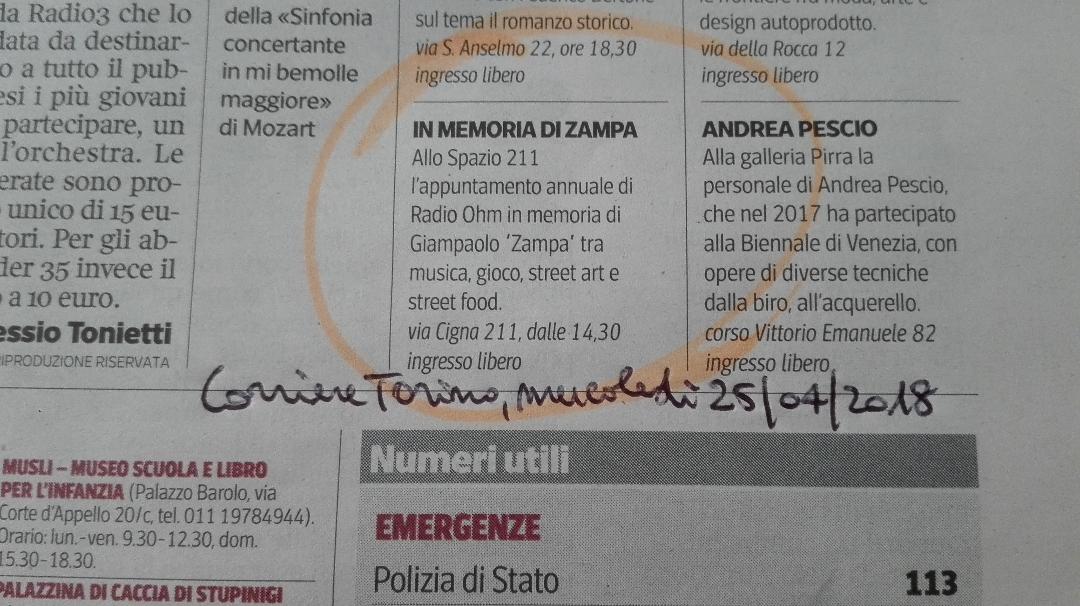 la Radio3 che lo
data da destinar-
o a tutto il pub-
esi i più giovani
partecipare, un
l'orchestra. Le
erate sono pro-
unico di 15 eu-
tori. Per gli ab-
der 35 invece il
a 10 euro.
essio Tonietti
RIPRODUZIONE RISERVATA
della «Sinfonia
concertante
in mi bemolle
maggiore»
di Mozart
sul tema il romanzo storico.
via S. Anselmo 22, ore 18,30
ingresso libero
IN MEMORIA DI ZAMPA
Allo Spazio 211
l'appuntamento annuale di
Radio Ohm in memoria di
Giampaolo 'Zampa' tra
musica, gioco, street art e
street food.
via Cigna 211, dalle 14,30
ingresso libero
design autoprodotto.
via della Rocca 12
ingresso libero
ANDREA PESCIO
Alla galleria Pirra la
personale di Andrea Pescio,
che nel 2017 ha partecipato
alla Biennale di Venezia, con
opere di diverse tecniche
dalla biro, all'acquerello.
corso Vittorio Emanuele 82
ingresso libero
Corriere Torino, mercoledì 25/04/2018
MUSLI – MUSEO SCUOLA E LIBRO
PER L'INFANZIA (Palazzo Barolo, via
Corte d'Appello 20/c, tel. 011 19784944).
Orario: lun.-ven. 9.30-12.30, dom.
15.30-18.30.
PALAZZINA DI CACCIA DI STUPINIGI
Numeri utili
EMERGENZE
Polizia di Stato 113